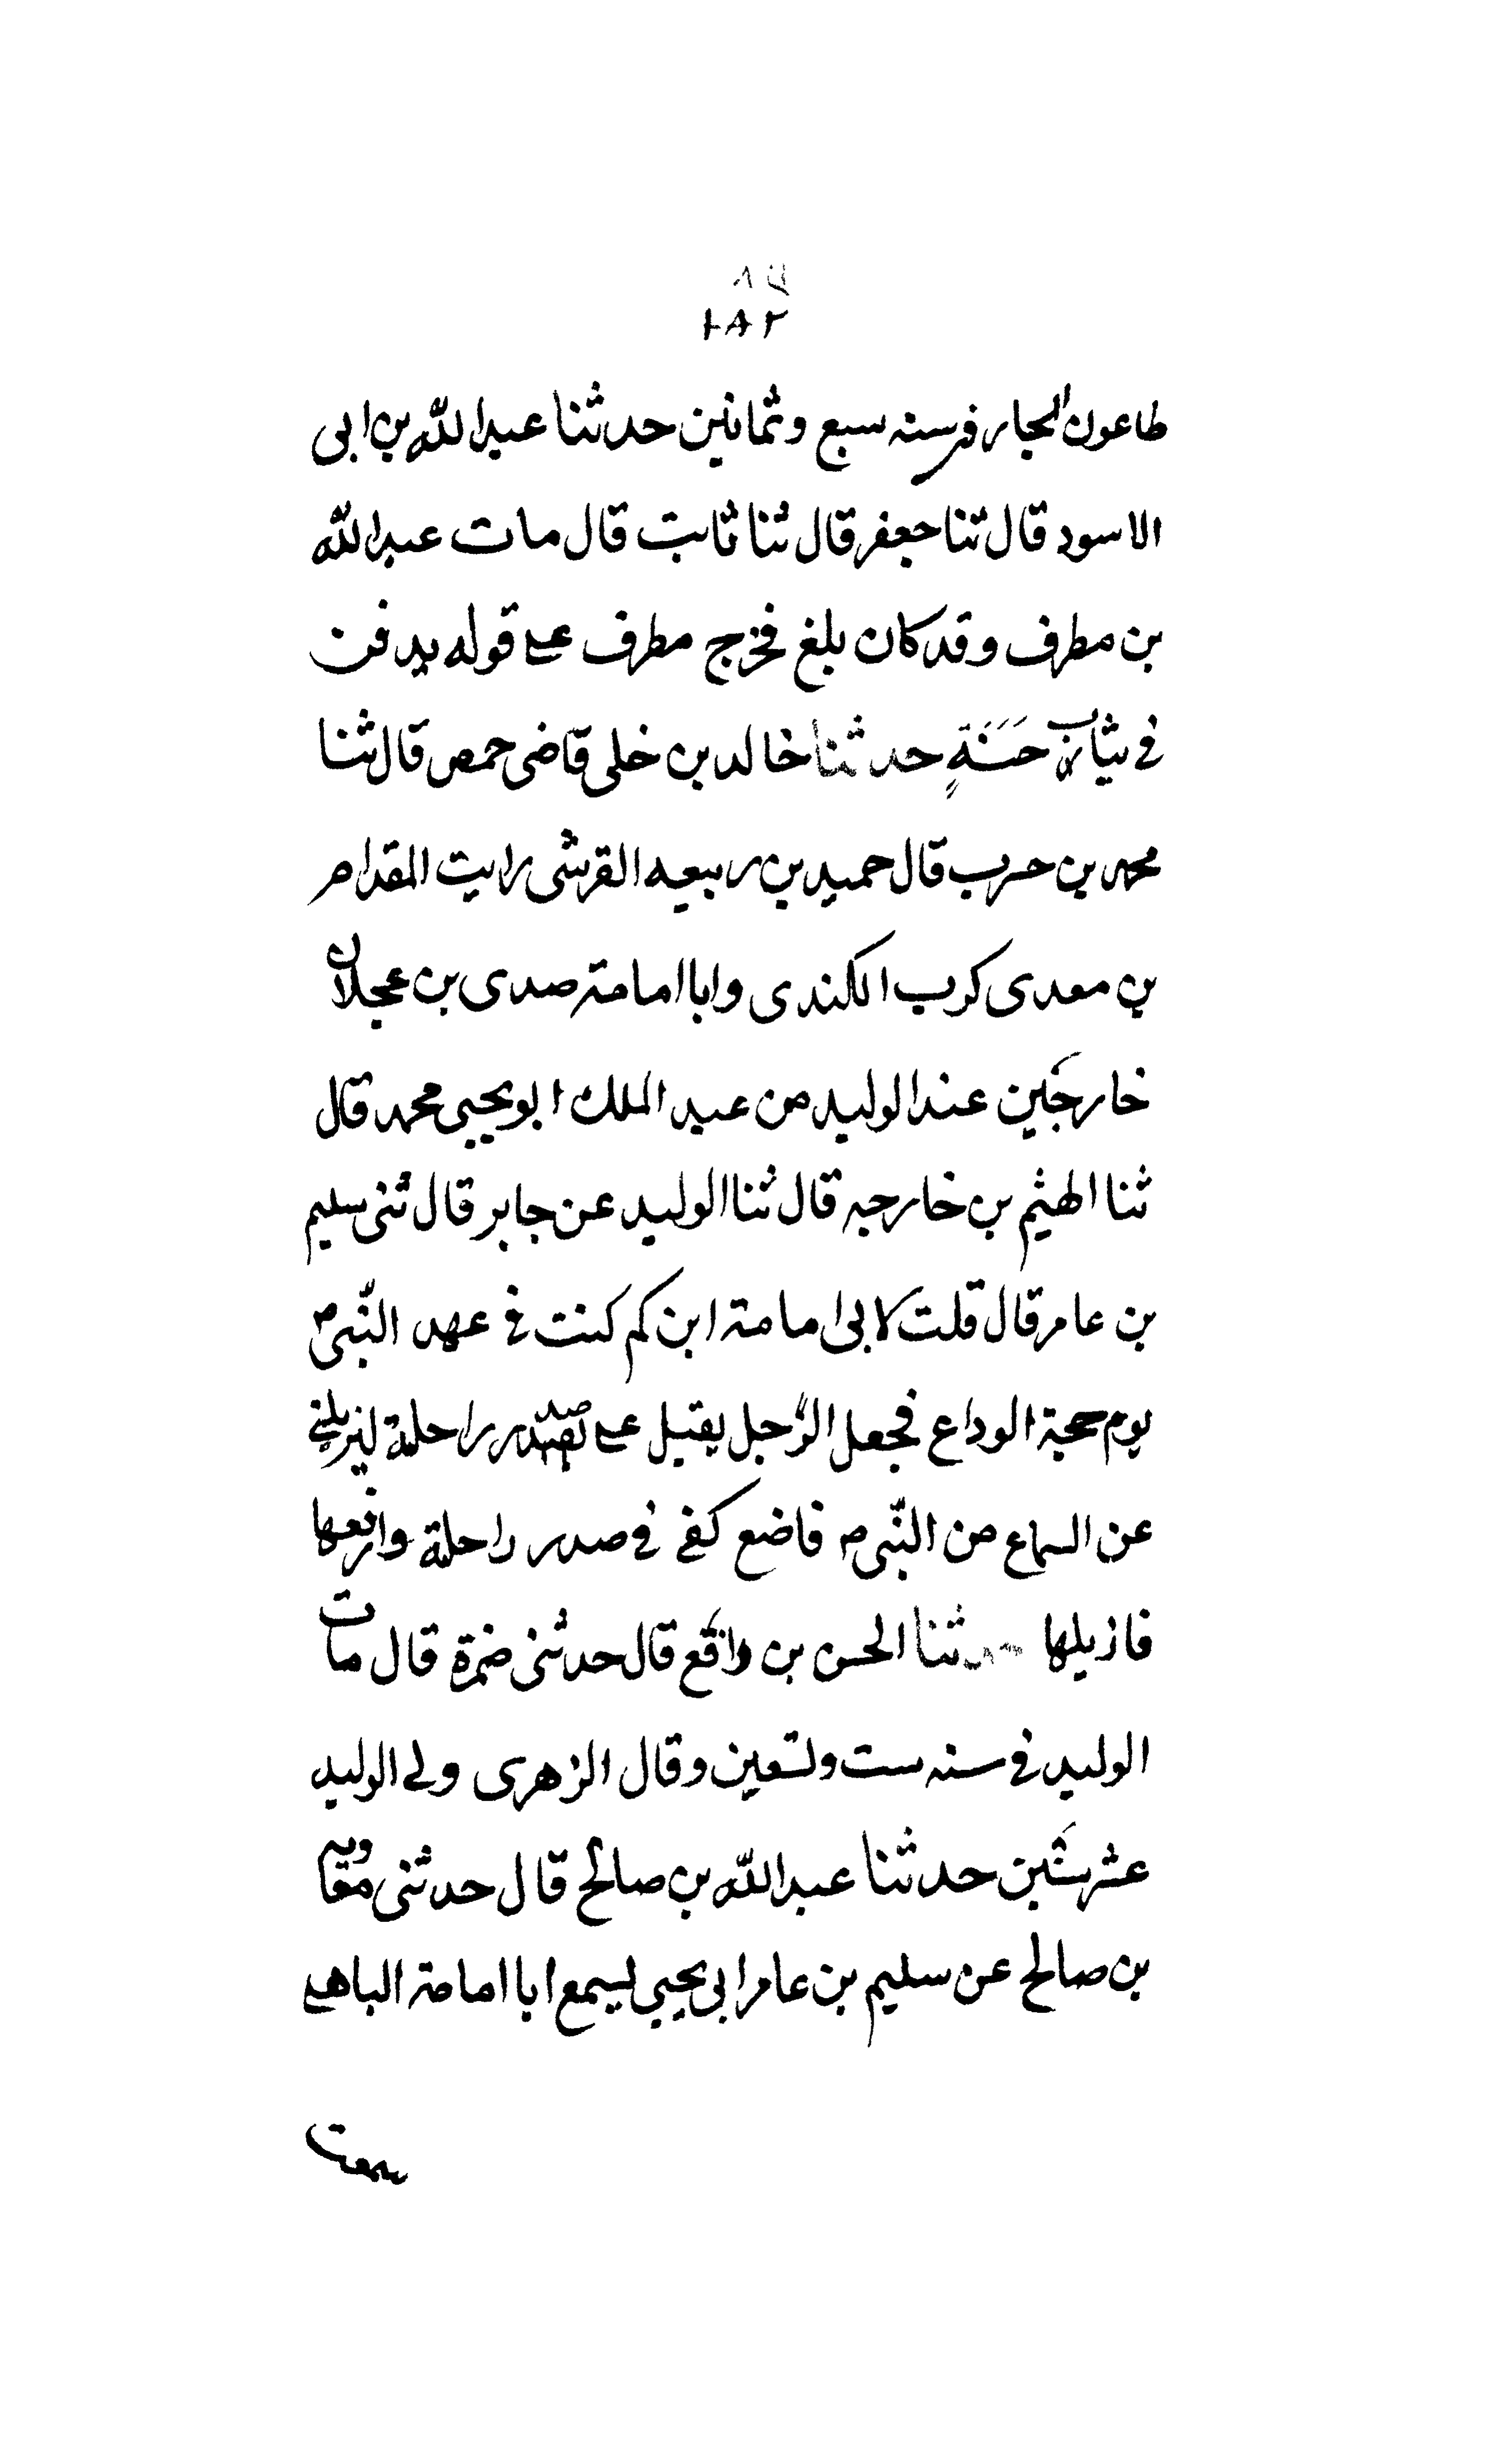 ١٨٢
طاعون الجارف سنه سبع وثمانين حدثنا عبدالله بن ابى
الاسود قال ثنا جعفر قال ثنا ثابت قال مات عبدالله
بن مطرف وقد كان بلغ فخرج مطرف على قوله يدفن
في ثياب حَسَنَةٍ حدثنا خالد بن خلى قاضى حمص قال ثنا
محمد بن حرب قال حميد بن ربيعه القرشى رايت المقدام
بن معدى كرب الكندى وابا امامة صدى بن عجلان
خارجَين عند الوليد من عبد الملك ابو يحيى محمد قال
ثنا الهيثم بن خارجه قال ثنا الوليد عن جابر قال ثنى سليم
بن عامر قال قلت لابى امامة ابن كم كنت في عهد النّبى ص
يوم حجة الوداع فجعل الرّجل يقبل على صدر راحلة ليزيلنى
عن السماع من النّبى ص فاضع كفى فى صدر راحلة وارفعها
فازيلها حدثنا الحسن بن واقع قال حدثنى ضمرة قال مات
الوليد فى سنه ست وتسعين وقال الزهرى ولى الوليد
عشر سنَين حدثنا عبدالله بن صالح قال حدثنى مقاويه
بن صالح عن سليم بن عامر ابى يحيى ليسمع ابا امامة الباهلى
سمعت